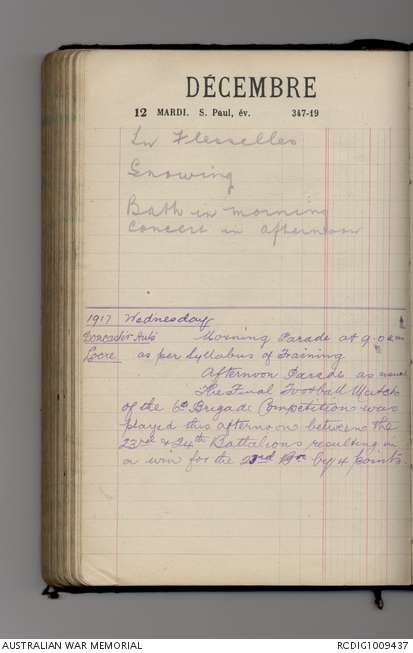 DÉCEMBRE
12 MARDI. S. Paul, év. 347-19
In Flesselles
Snowing
Bath in morning
Concert in afternoon
1917 Wednesday
Doncaster Huts Morning Parade at 9.0 am
Locre as per Syllabus of Training.
Afternoon Parade as usual
The Final Football Match
of the 6th Brigade Competitions was
played this afternoon between the
23rd & 24th Battalions resulting in
a win for the 23rd Bn by 4 points.
AUSTRALIAN WAR MEMORIAL
RCDIG1009437